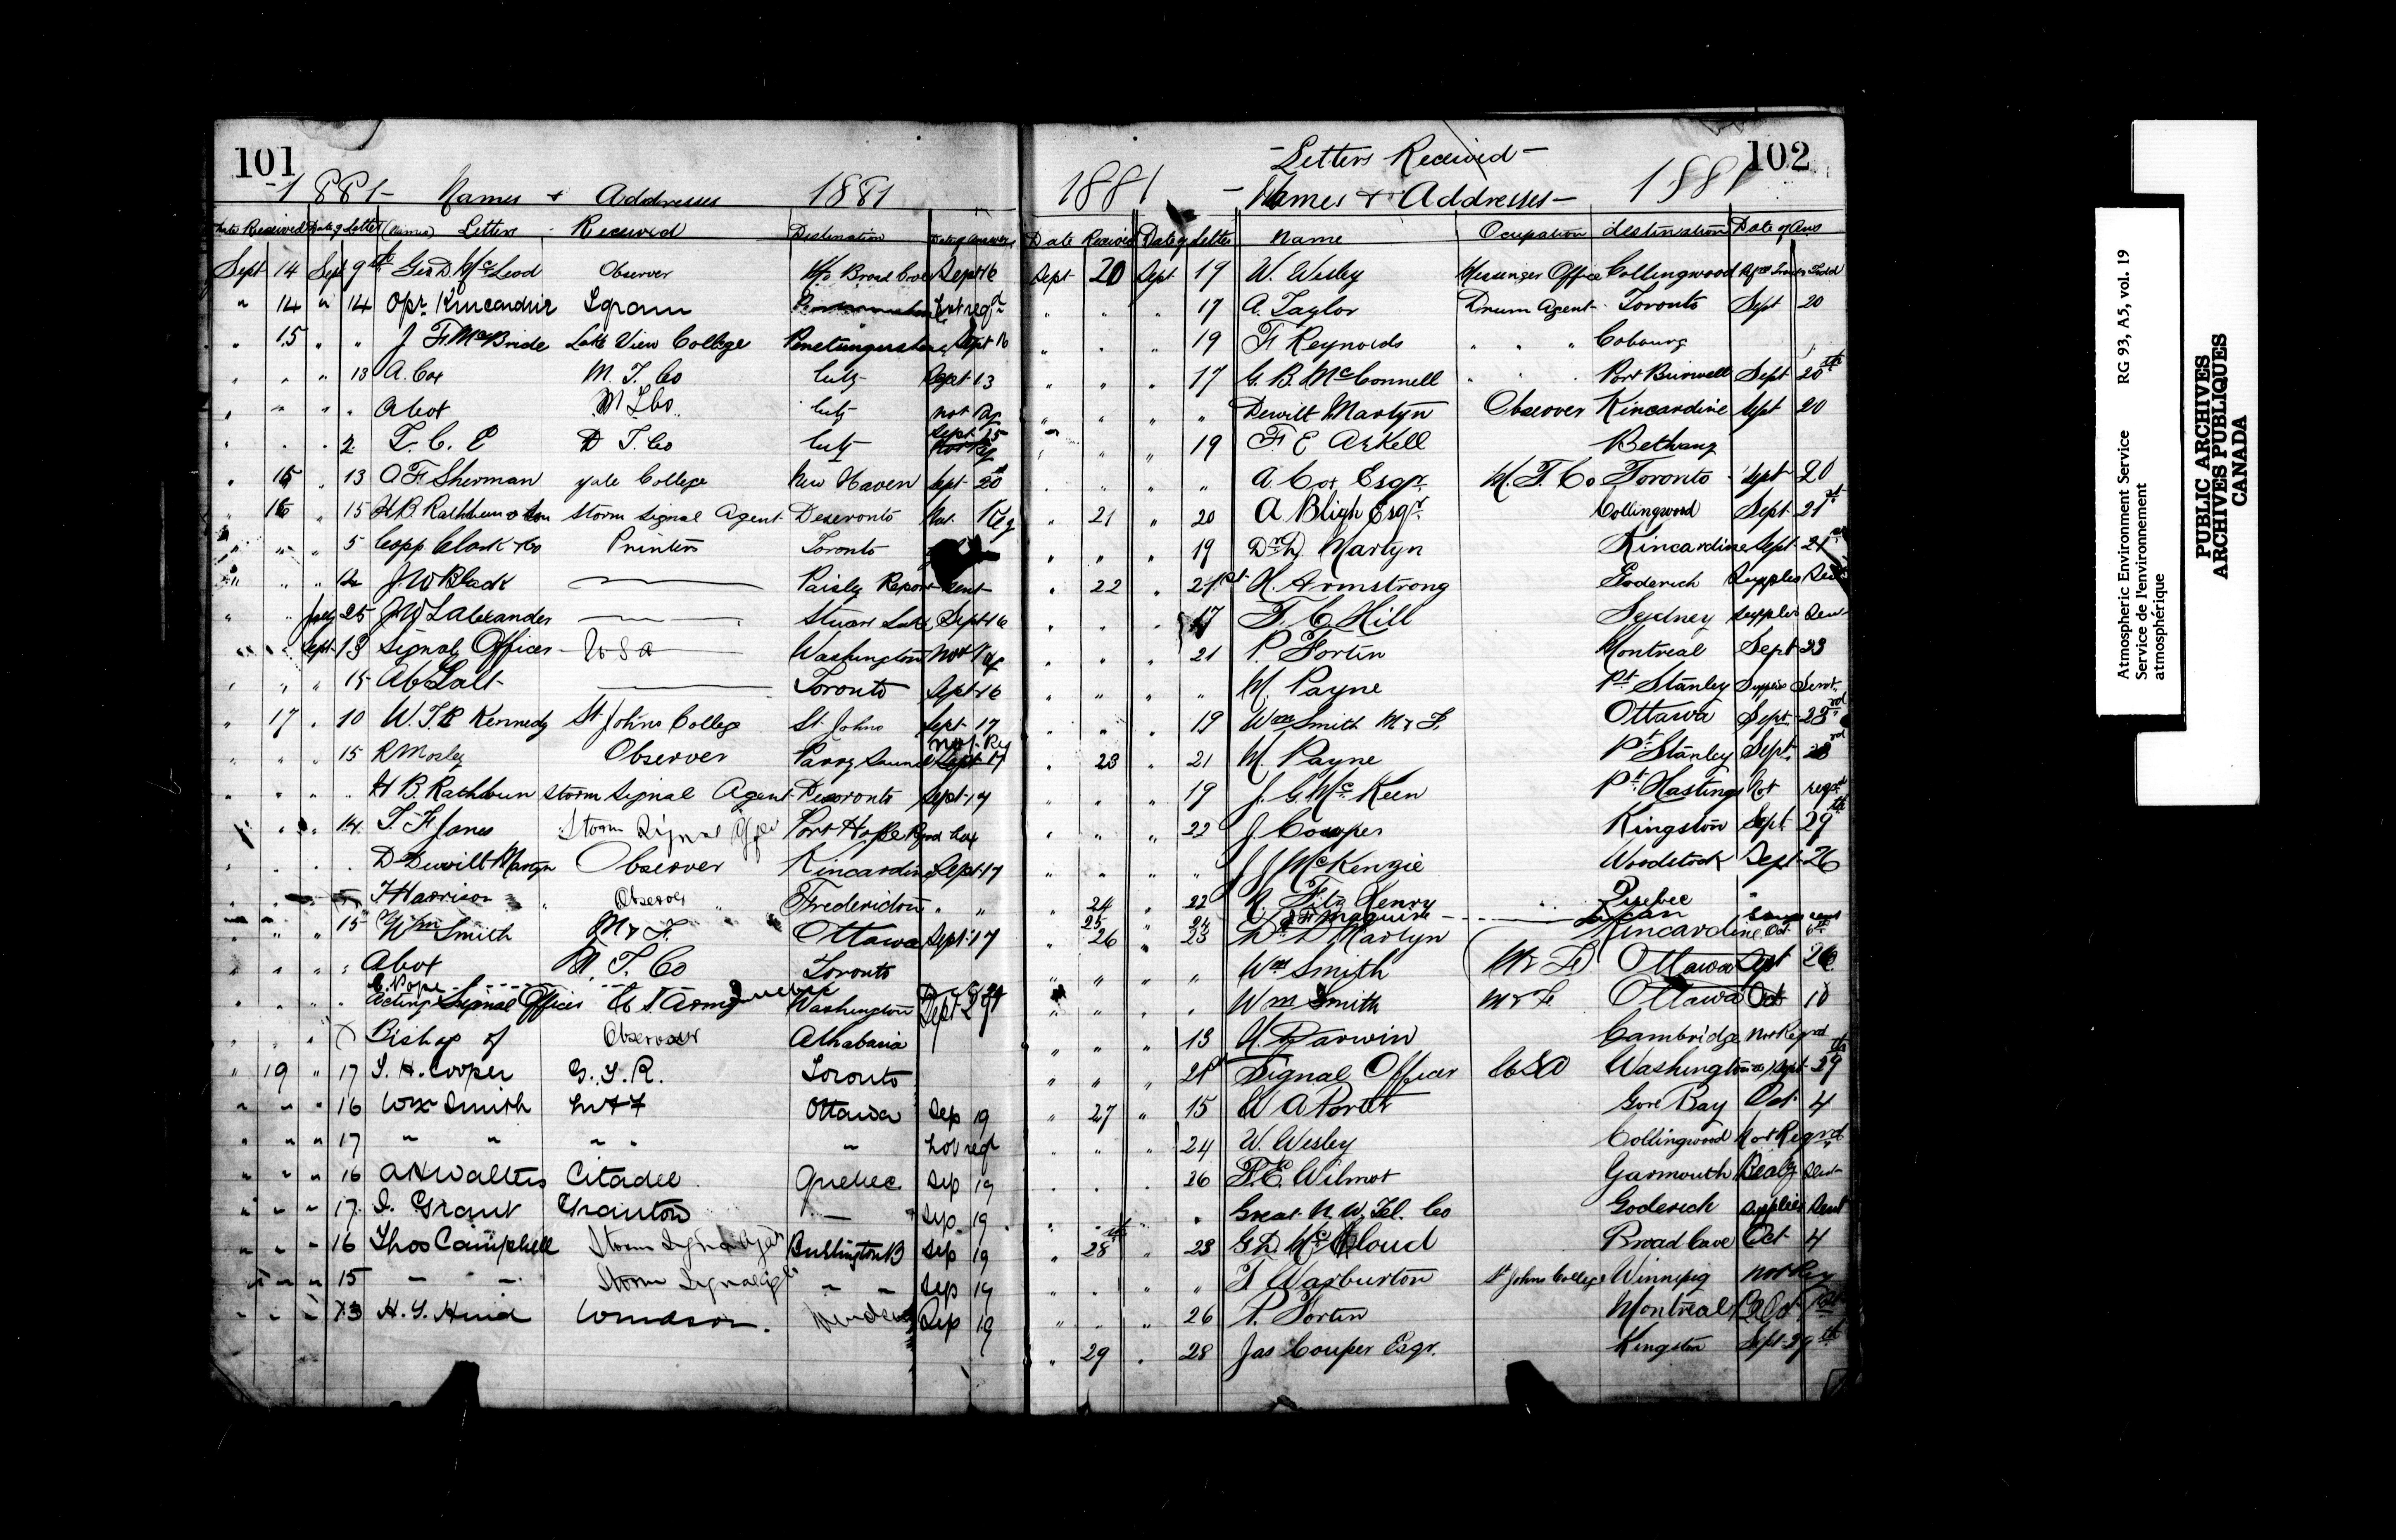 101
1881 - Names & Addresses 1881
Date Received Date of Letter (Names) Letters Received Destination Date of Answers
Sept 14 Sept 9th Geo D. McLeod Observer Broad Cove Sept 16
" 14 " 14 Opr. Kincardine not reqd
" 15 " " J F McBride Lake View College Penetanguishene Sept 16
" " " 13 A. Cox M. T. Co City Sept 13
" " " " A Cox M T Co City not
" " " 2 T. C. E D T. Co City Sept 15
" 15 " 13 O F Sherman Yale College New Haven Sept 20
" 16 " 15 H B. Rathbun & Son Storm Signal Agent Deseronto Not Reg
" " " 5 Copp Clark & Co Printers Toronto
" " " 12 J W Black Paisly Report Sent
" " July 25 J W S Alexander Stuart Lake Sept 16
" " Sept 13 Signal Officer U S A Washington Not Reg
" " " 15 Toronto Sept 16
" 17 " 10 W. T. B Kennedy St Johns College St. Johns Sept 17
" " " 15 R Mosley Observer Parry Sound Not Reg Sept 17
" " " " H B. Rathbun Storm Signal Agent Deseronto Sept 17
" " " 14 T. F Jones Storm Signal Port Hope
" " " " D Dewilt Martyn Observer Kincardine Sept 17
T Harrison Observer Fredericton " "
" " " 15 Wm Smith M & F. Ottawa Sept 17
" " " " A Cox M. T. Co Toronto
C. Pope Quebec
" " " " Acting Signal Officer U S Army Washington Sept 27
" " " Bishop of Observer Athabaska
" 19 " 17 J. H. Cooper G. T. R. Toronto
" " " 16 Wm Smith M & F Ottawa Sep 19
" " " 17 " " " " " not reqd
" " " 16 A N Walters Citadel Quebec Sep 19
" " " 17 D. Grant Granton — Sep 19
" " " 16 Thos Campbell Storm Signal Agt Burlington B Sep 19
" " " 15 " " Storm Signal " " Sep 19
" " " 13 H. Y. Hind Windsor. Windsor Sep 19
102
- Letters Received -
1881 - Names & Addresses - 1881
Date Received Date of Letter Name Ocupation destination Date of Ans
Sept 20 Sept 19 W. Wesley Messenger Office Collingwood
" " " 17 A. Taylor Drum Agent Toronto Sept 20
" " " 19 F Reynolds " " " Cobourg "
" " " 17 G. B. McConnell " " Port Burwell Sept 20th
" " " " Dewilt Martyn Observer Kincardine Sept 20
" " " 19 F E Arkell Bethany
" " " " A. Cox Esqr. M. T. Co Toronto Sept 20
" 21 " 20 A. Bligh Esqr. Collingwood Sept 21st
" " " 19 Dr D. Martyn Kincardine Sept 21st
" 22 " 21st H. Armstrong Goderich Supplies Sent
" " " 17 T. C Hill Sydney Supplies Sent
" " " 21 P. Fortin Montreal Sept 23
" " " " M. Payne Pt Stanley Supplies Sent
" " " 19 Wm Smith M & F. Ottawa Sept 23rd
" 23 " 21 M. Payne Pt Stanley Sept 23rd
" " " 19 J. G. McKeen Pt Hastings Not reqd
" " " 22 J Couper Kingston Sept 29th
" " " " J J McKenzie Woodstock Sept 26
" 24 " 22 Fitz Henry Quebec "
25 " 24 Maguire Lucan
" 26 " 23 Dr D Martyn Kincardine Oct 6th
" " " " Wm Smith (M & F) Ottawa Sept 26
" " " " Wm Smith M & F. Ottawa Oct 10
" " " 13 H. Darwin Cambridge Not Reqrd
" " " 21st Signal Officer U S A Washington Sept 29th
" 27 " 15 W A Porter Gore Bay Oct 4
" " " 24 W. Wesley Collingwood Not Reqrd
" " " 26 F. E. Wilmot Yarmouth Sent
" " " " Great N. W. Tel. Co Goderich Supplies Sent
" 28th " 23 G D. McCloud Broad Cove Oct 4
" " " " T Warburton St Johns College Winnipeg Not Reg
" " " 26 P. Fortin Montreal
" 29 " 28 Jas Couper Esqr. Kingston Sept 29th
Atmospheric Environment Service RG 93, A5, vol. 19
Service de l'environnement
atmosphérique
PUBLIC ARCHIVES
ARCHIVES PUBLIQUES
CANADA